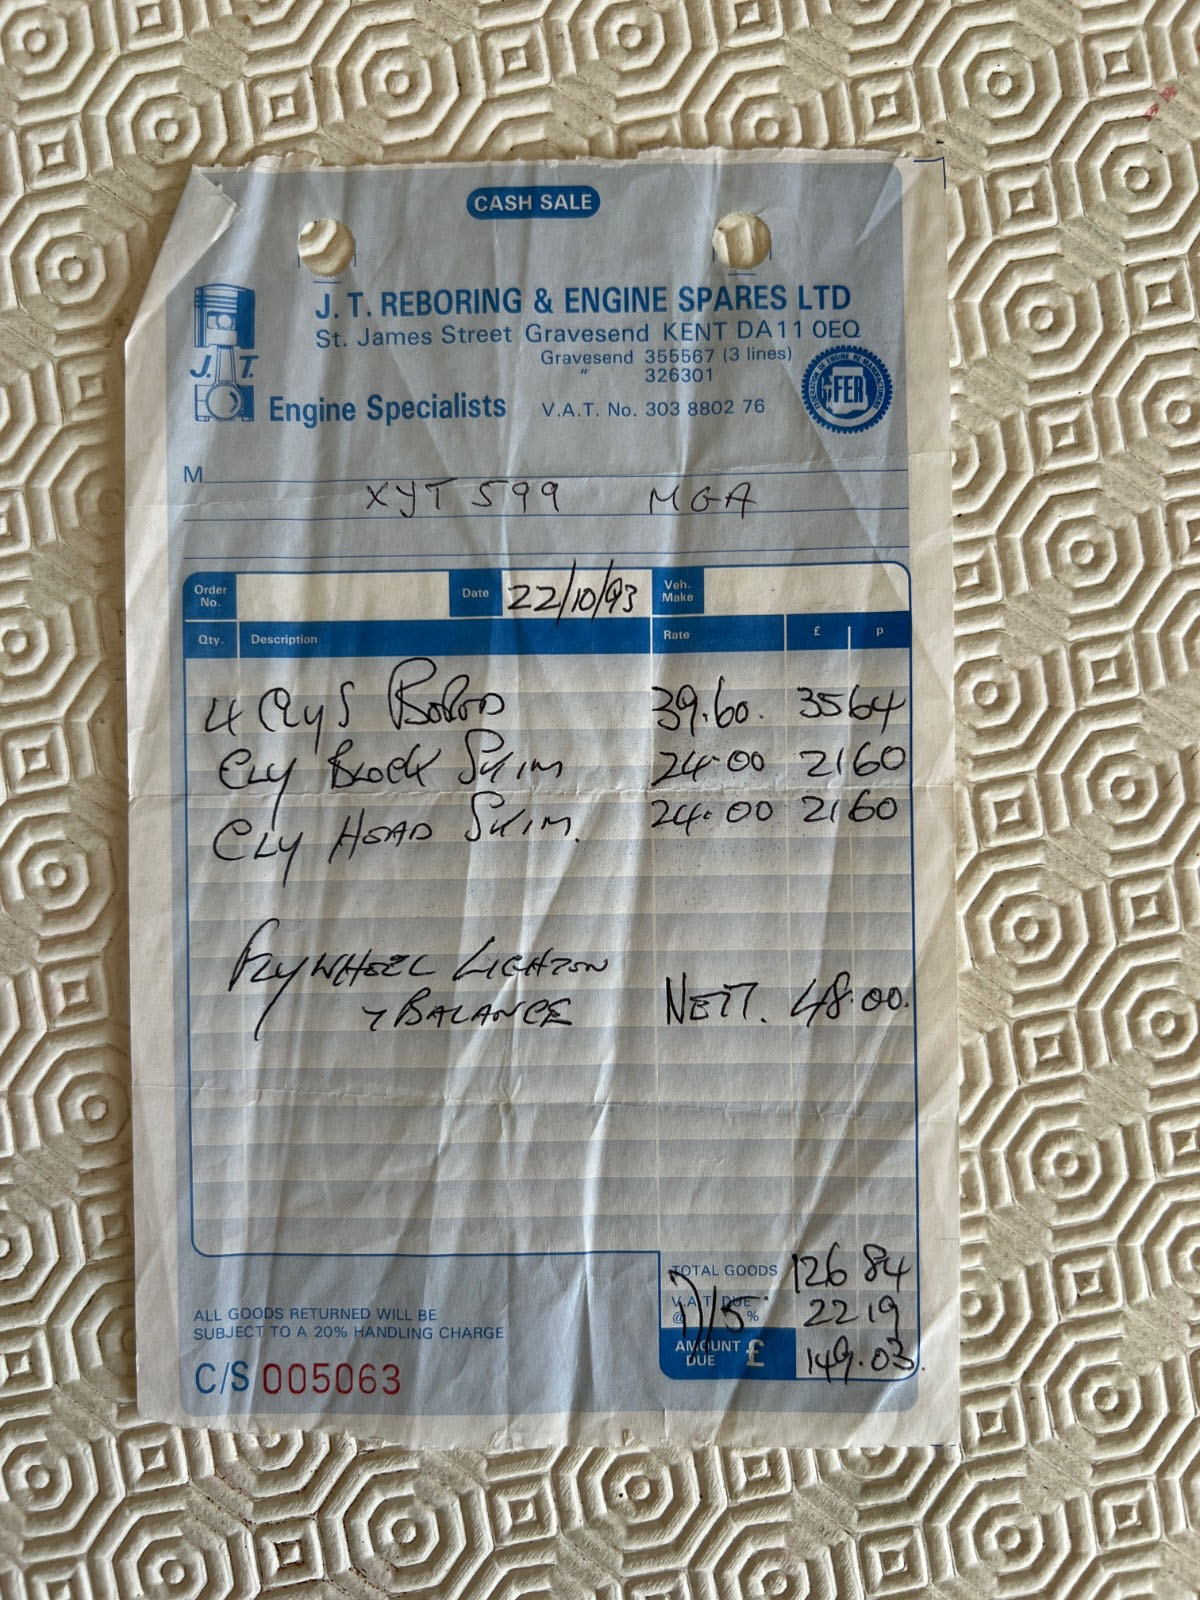 CASH SALE
J. T. REBORING & ENGINE SPARES LTD
St. James Street Gravesend KENT DA11 0EQ
Gravesend 355567 (3 lines)
" 326301
J. T.
Engine Specialists V.A.T. No. 303 8802 76
FEDERATION OF ENGINE RE-MANUFACTURERS
FER
M
XYT 599 MGA
Order No. Date 22/10/93 Veh. Make
Qty. Description Rate £ p
4 Cyls Bored 39.60. 35 64
Cly Block Skim 24.00 21 60
Cly Head Skim. 24.00 21 60
Flywheel Lighten
+ Balance Nett. 48.00.
TOTAL GOODS 126 84
V.A.T. DUE @ 17/5 % 22 19
AMOUNT DUE £ 149.03.
ALL GOODS RETURNED WILL BE
SUBJECT TO A 20% HANDLING CHARGE
C/S 005063